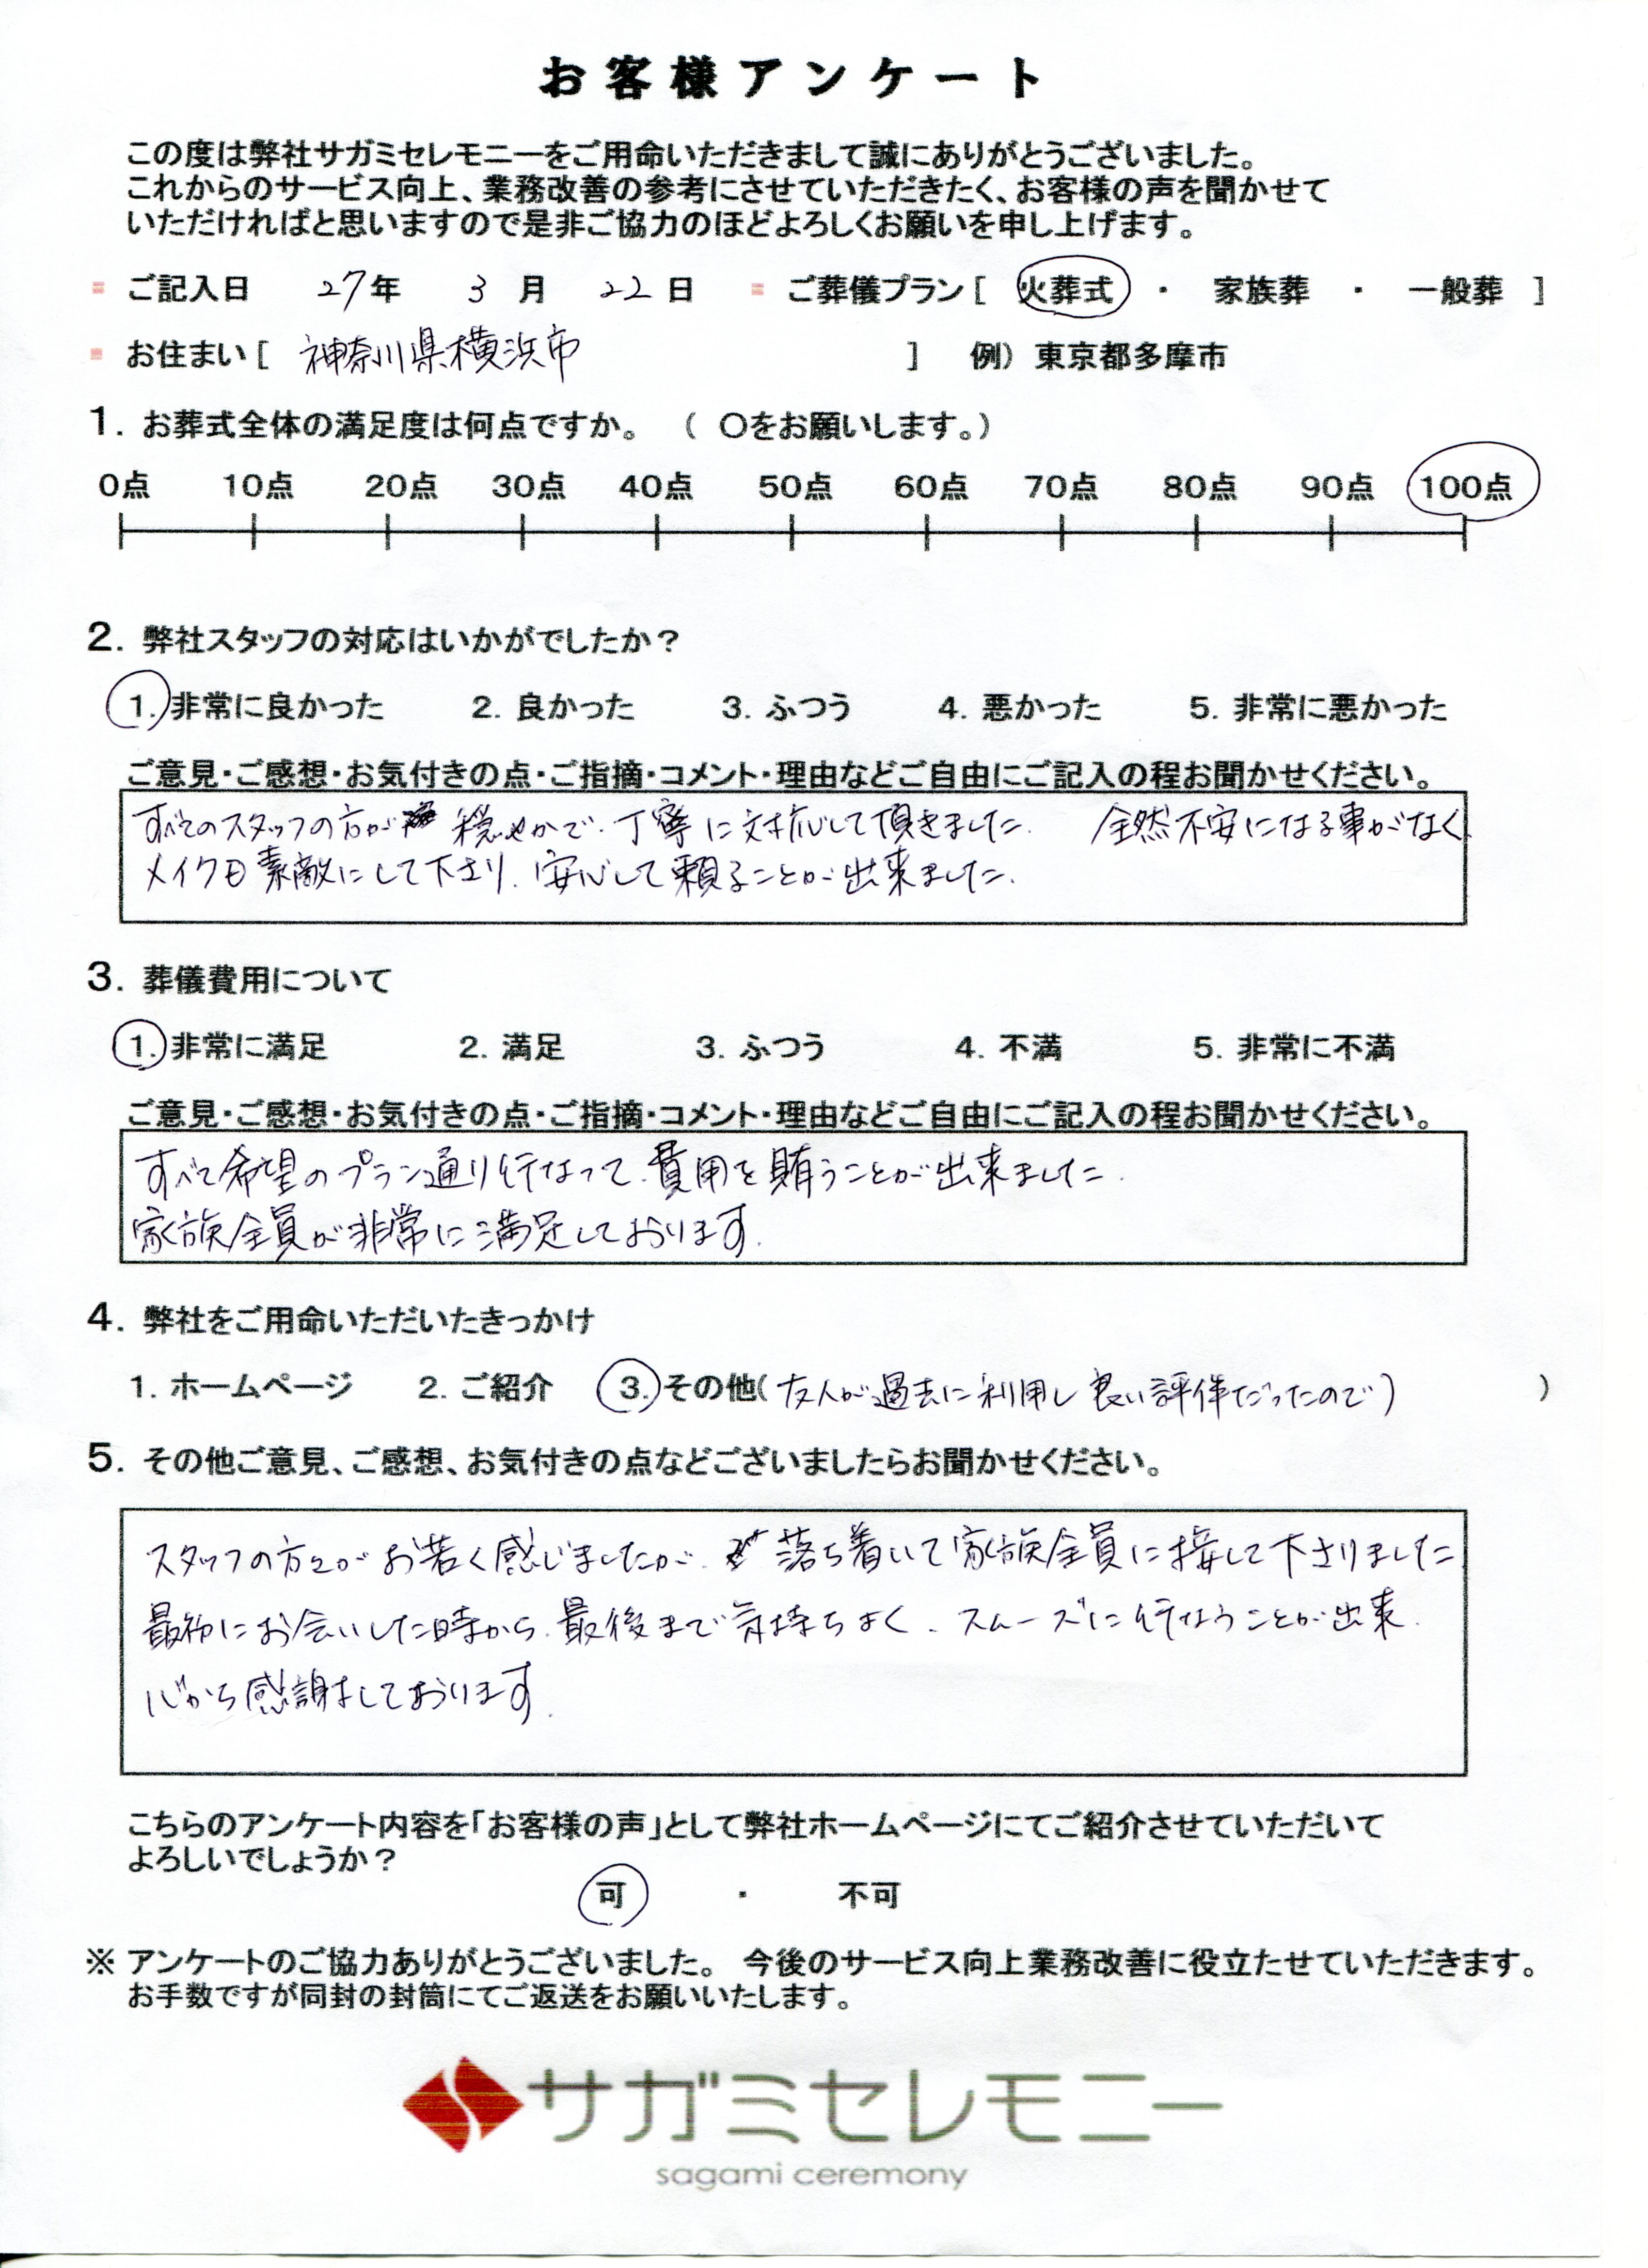 お客様アンケート
この度は弊社サガミセレモニーをご用命いただきまして誠にありがとうございました。
これからのサービス向上、業務改善の参考にさせていただきたく、お客様の声を聞かせて
いただければと思いますので是非ご協力のほどよろしくお願いを申し上げます。
ご記入日 27年 3月 22日 ご葬儀プラン [ 火葬式 ・ 家族葬 ・ 一般葬 ]
お住まい [ 神奈川県横浜市 ] 例) 東京都多摩市
1. お葬式全体の満足度は何点ですか。 ( ○をお願いします。)
0点 10点 20点 30点 40点 50点 60点 70点 80点 90点 100点
2. 弊社スタッフの対応はいかがでしたか?
1. 非常に良かった 2. 良かった 3. ふつう 4. 悪かった 5. 非常に悪かった
ご意見・ご感想・お気付きの点・ご指摘・コメント・理由などご自由にご記入の程お聞かせください。
すべてのスタッフの方が 穏やかで、丁寧に対応して頂きました. 全然不安になる事がなく、
メイクも素敵にして下さり、安心して頼ることが出来ました.
3. 葬儀費用について
1. 非常に満足 2. 満足 3. ふつう 4. 不満 5. 非常に不満
ご意見・ご感想・お気付きの点・ご指摘・コメント・理由などご自由にご記入の程お聞かせください。
すべて希望のプラン通り行なって、費用を賄うことが出来ました.
家族全員が非常に満足しております.
4. 弊社をご用命いただいたきっかけ
1. ホームページ 2. ご紹介 3. その他( 友人が過去に利用し 良い評価だったので) )
5. その他ご意見、ご感想、お気付きの点などございましたらお聞かせください。
スタッフの方々がお若く感じましたが、落ち着いて家族全員に接して下さりました
最初にお会いした時から、最後まで気持ちよく、スムーズに行なうことが出来、
心から感謝しております.
こちらのアンケート内容を「お客様の声」として弊社ホームページにてご紹介させていただいて
よろしいでしょうか?
可 ・ 不可
※ アンケートのご協力ありがとうございました。 今後のサービス向上業務改善に役立たせていただきます。
お手数ですが同封の封筒にてご返送をお願いいたします。
サガミセレモニー
sagami ceremony